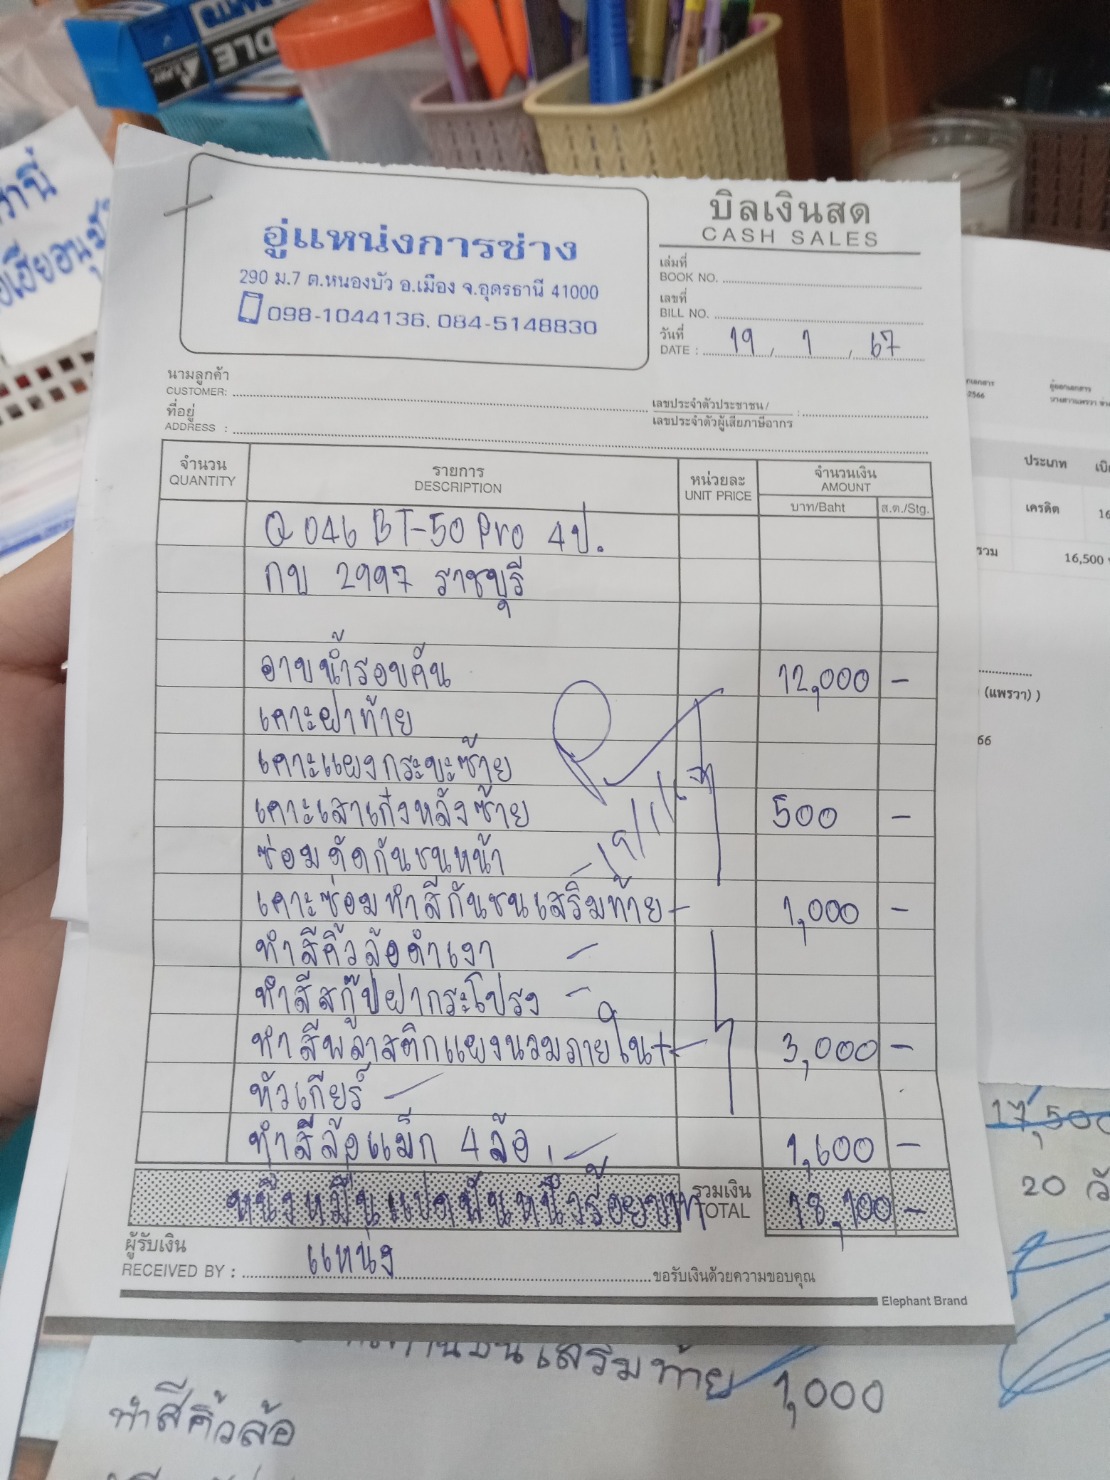 อู่แหน่งการช่าง
290 ม.7 ต.หนองบัว อ.เมือง จ.อุดรธานี 41000
098-1044136, 084-5148830
บิลเงินสด
CASH SALES
เล่มที่
BOOK NO.
เลขที่
BILL NO.
วันที่
DATE : 19 , 1 , 67
นามลูกค้า
CUSTOMER:
ที่อยู่
ADDRESS :
เลขประจำตัวประชาชน /
เลขประจำตัวผู้เสียภาษีอากร :
จำนวน
QUANTITY
รายการ
DESCRIPTION
หน่วยละ
UNIT PRICE
จำนวนเงิน
AMOUNT
บาท/Baht ส.ต./Stg.
Q 046 BT-50 Pro 4ป.
กบ 2997 ราชบุรี
อาบน้ำรอบคัน 12,000 -
เคาะฝาท้าย
เคาะแผงกระบะซ้าย
เคาะเสาเก๋งหลังซ้าย 500 -
ซ่อมดัดกันชนหน้า
เคาะซ่อมทำสีกันชนเสริมท้าย 1,000 -
ทำสีคิ้วล้อดำเงา
ทำสีสกู๊ปฝากระโปรง
ทำสีพลาสติกแผงนวมภายใน+ 3,000 -
หัวเกียร์
ทำสีล้อแม็ก 4 ล้อ 1,600 -
หนึ่งหมื่นแปดพันหนึ่งร้อยบาท
รวมเงิน
TOTAL 18,100 -
ผู้รับเงิน
RECEIVED BY : แหน่ง ขอรับเงินด้วยความขอบคุณ
Elephant Brand
ประเภท
เครดิต
รวม 16,500
(แพรวา) )
17,500
20
เสริมท้าย 1,000
ทำสีคิ้วล้อ